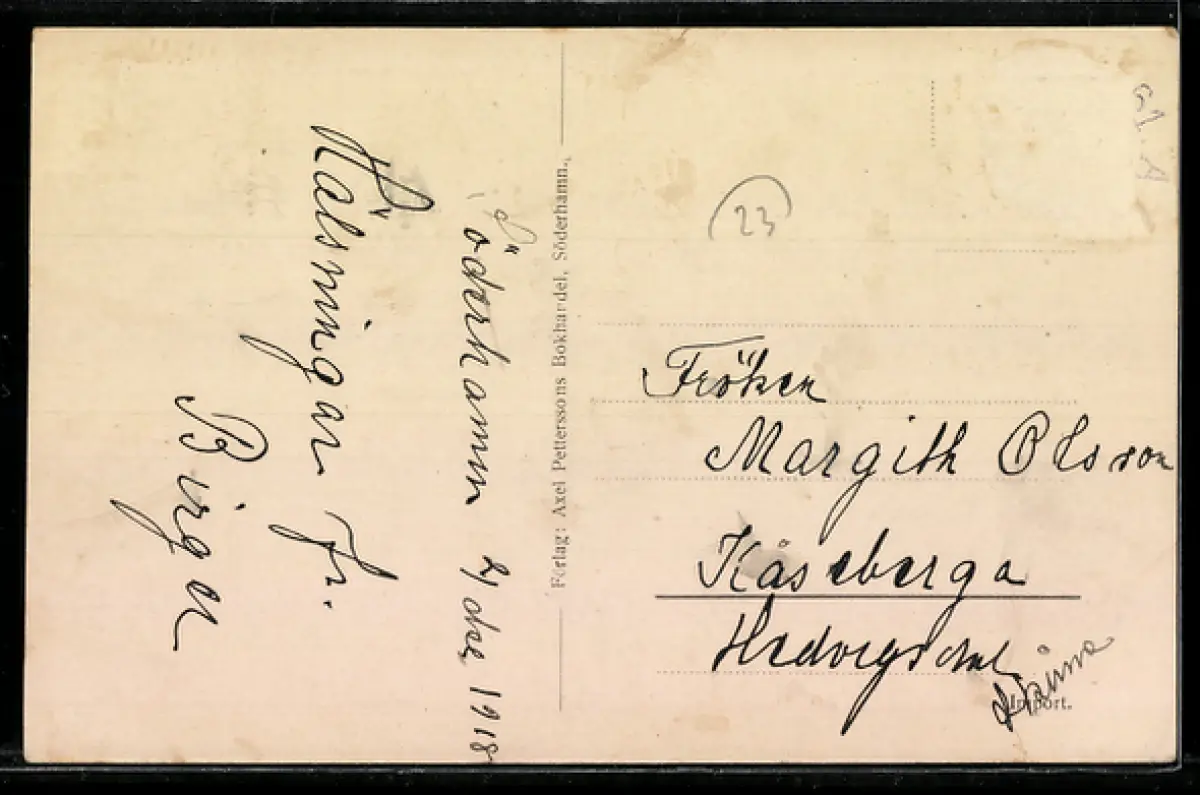 Söderhamn 2/dec, 1918
Hälsningar fr.
Birga
Förlag: Axel Petterssons Bokhandel, Söderhamn.
23
Fröken
Margith Olsson
Kåseberga
Hedvigsdal
Import.